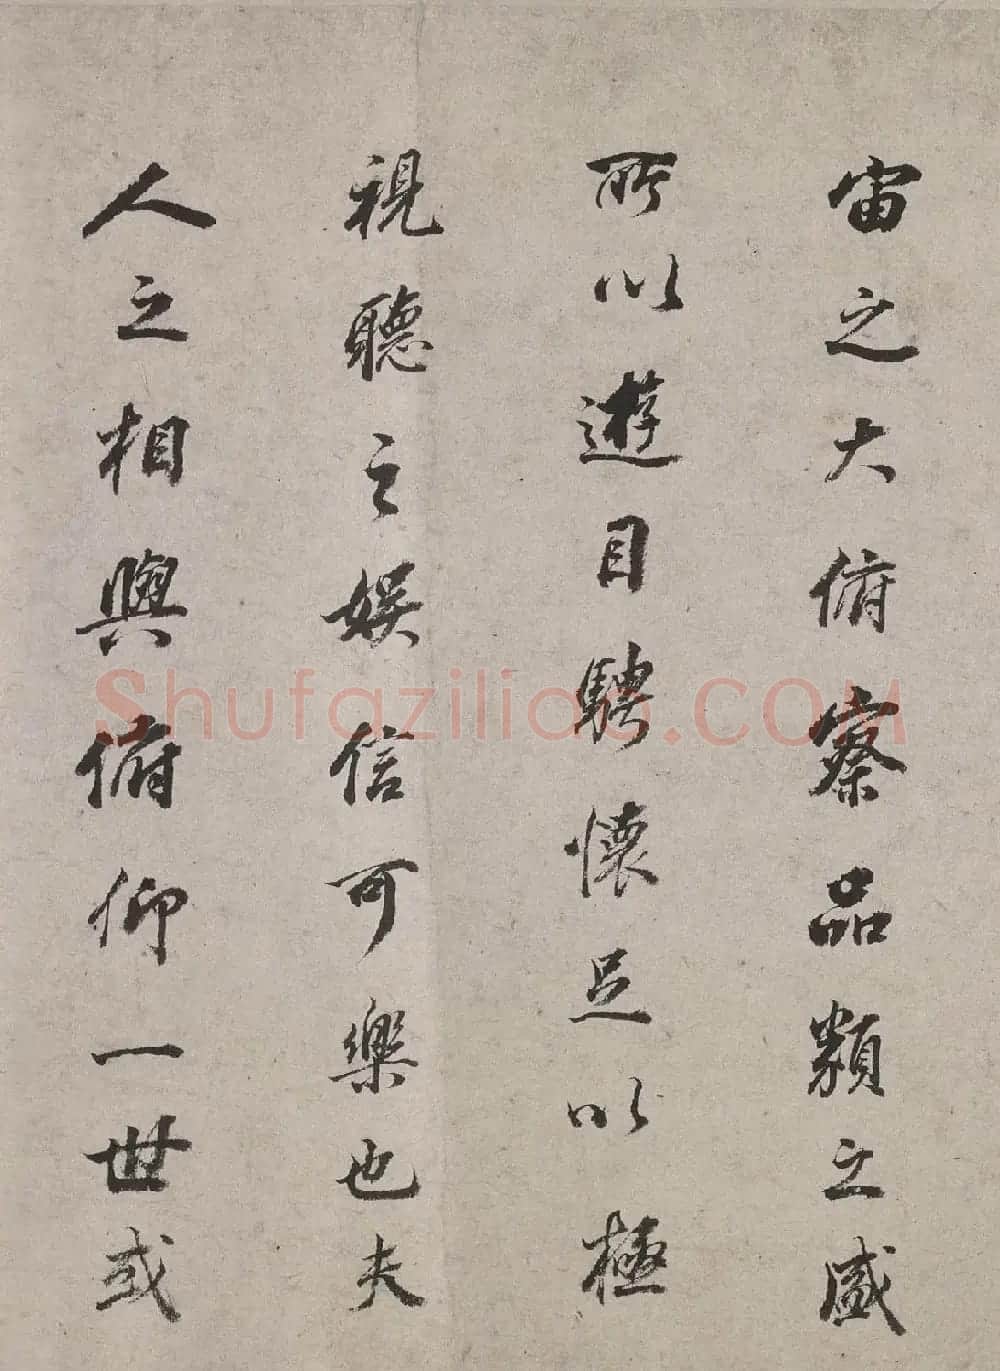 宙之大俯察品類之盛
所以遊目騁懷足以極
視聽之娛信可樂也夫
人之相與俯仰一世或
Shufaziliao.COM